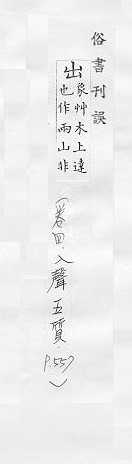 俗書刊誤
出象艸木上達
也作兩山非
(卷四入聲五質,
P.557)